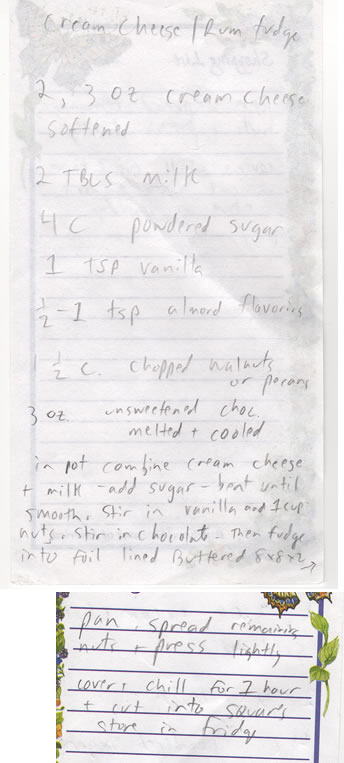 Cream Cheese / Rum fudge
2, 3 oz cream cheese
softened
2 TBLS milk
4 C powdered sugar
1 tsp vanilla
1/2 - 1 tsp almond flavoring
1 1/2 c. chopped walnuts
or pecans
3 oz. unsweetened choc.
melted + cooled
in pot combine cream cheese
+ milk - add sugar - beat until
smooth. Stir in vanilla and 1 cup
nuts. Stir in chocolate - Then fudge
into foil lined Buttered 8x8x2 →
pan spread remaining
nuts + press lightly
cover + chill for 1 hour
+ cut into squares
store in fridge